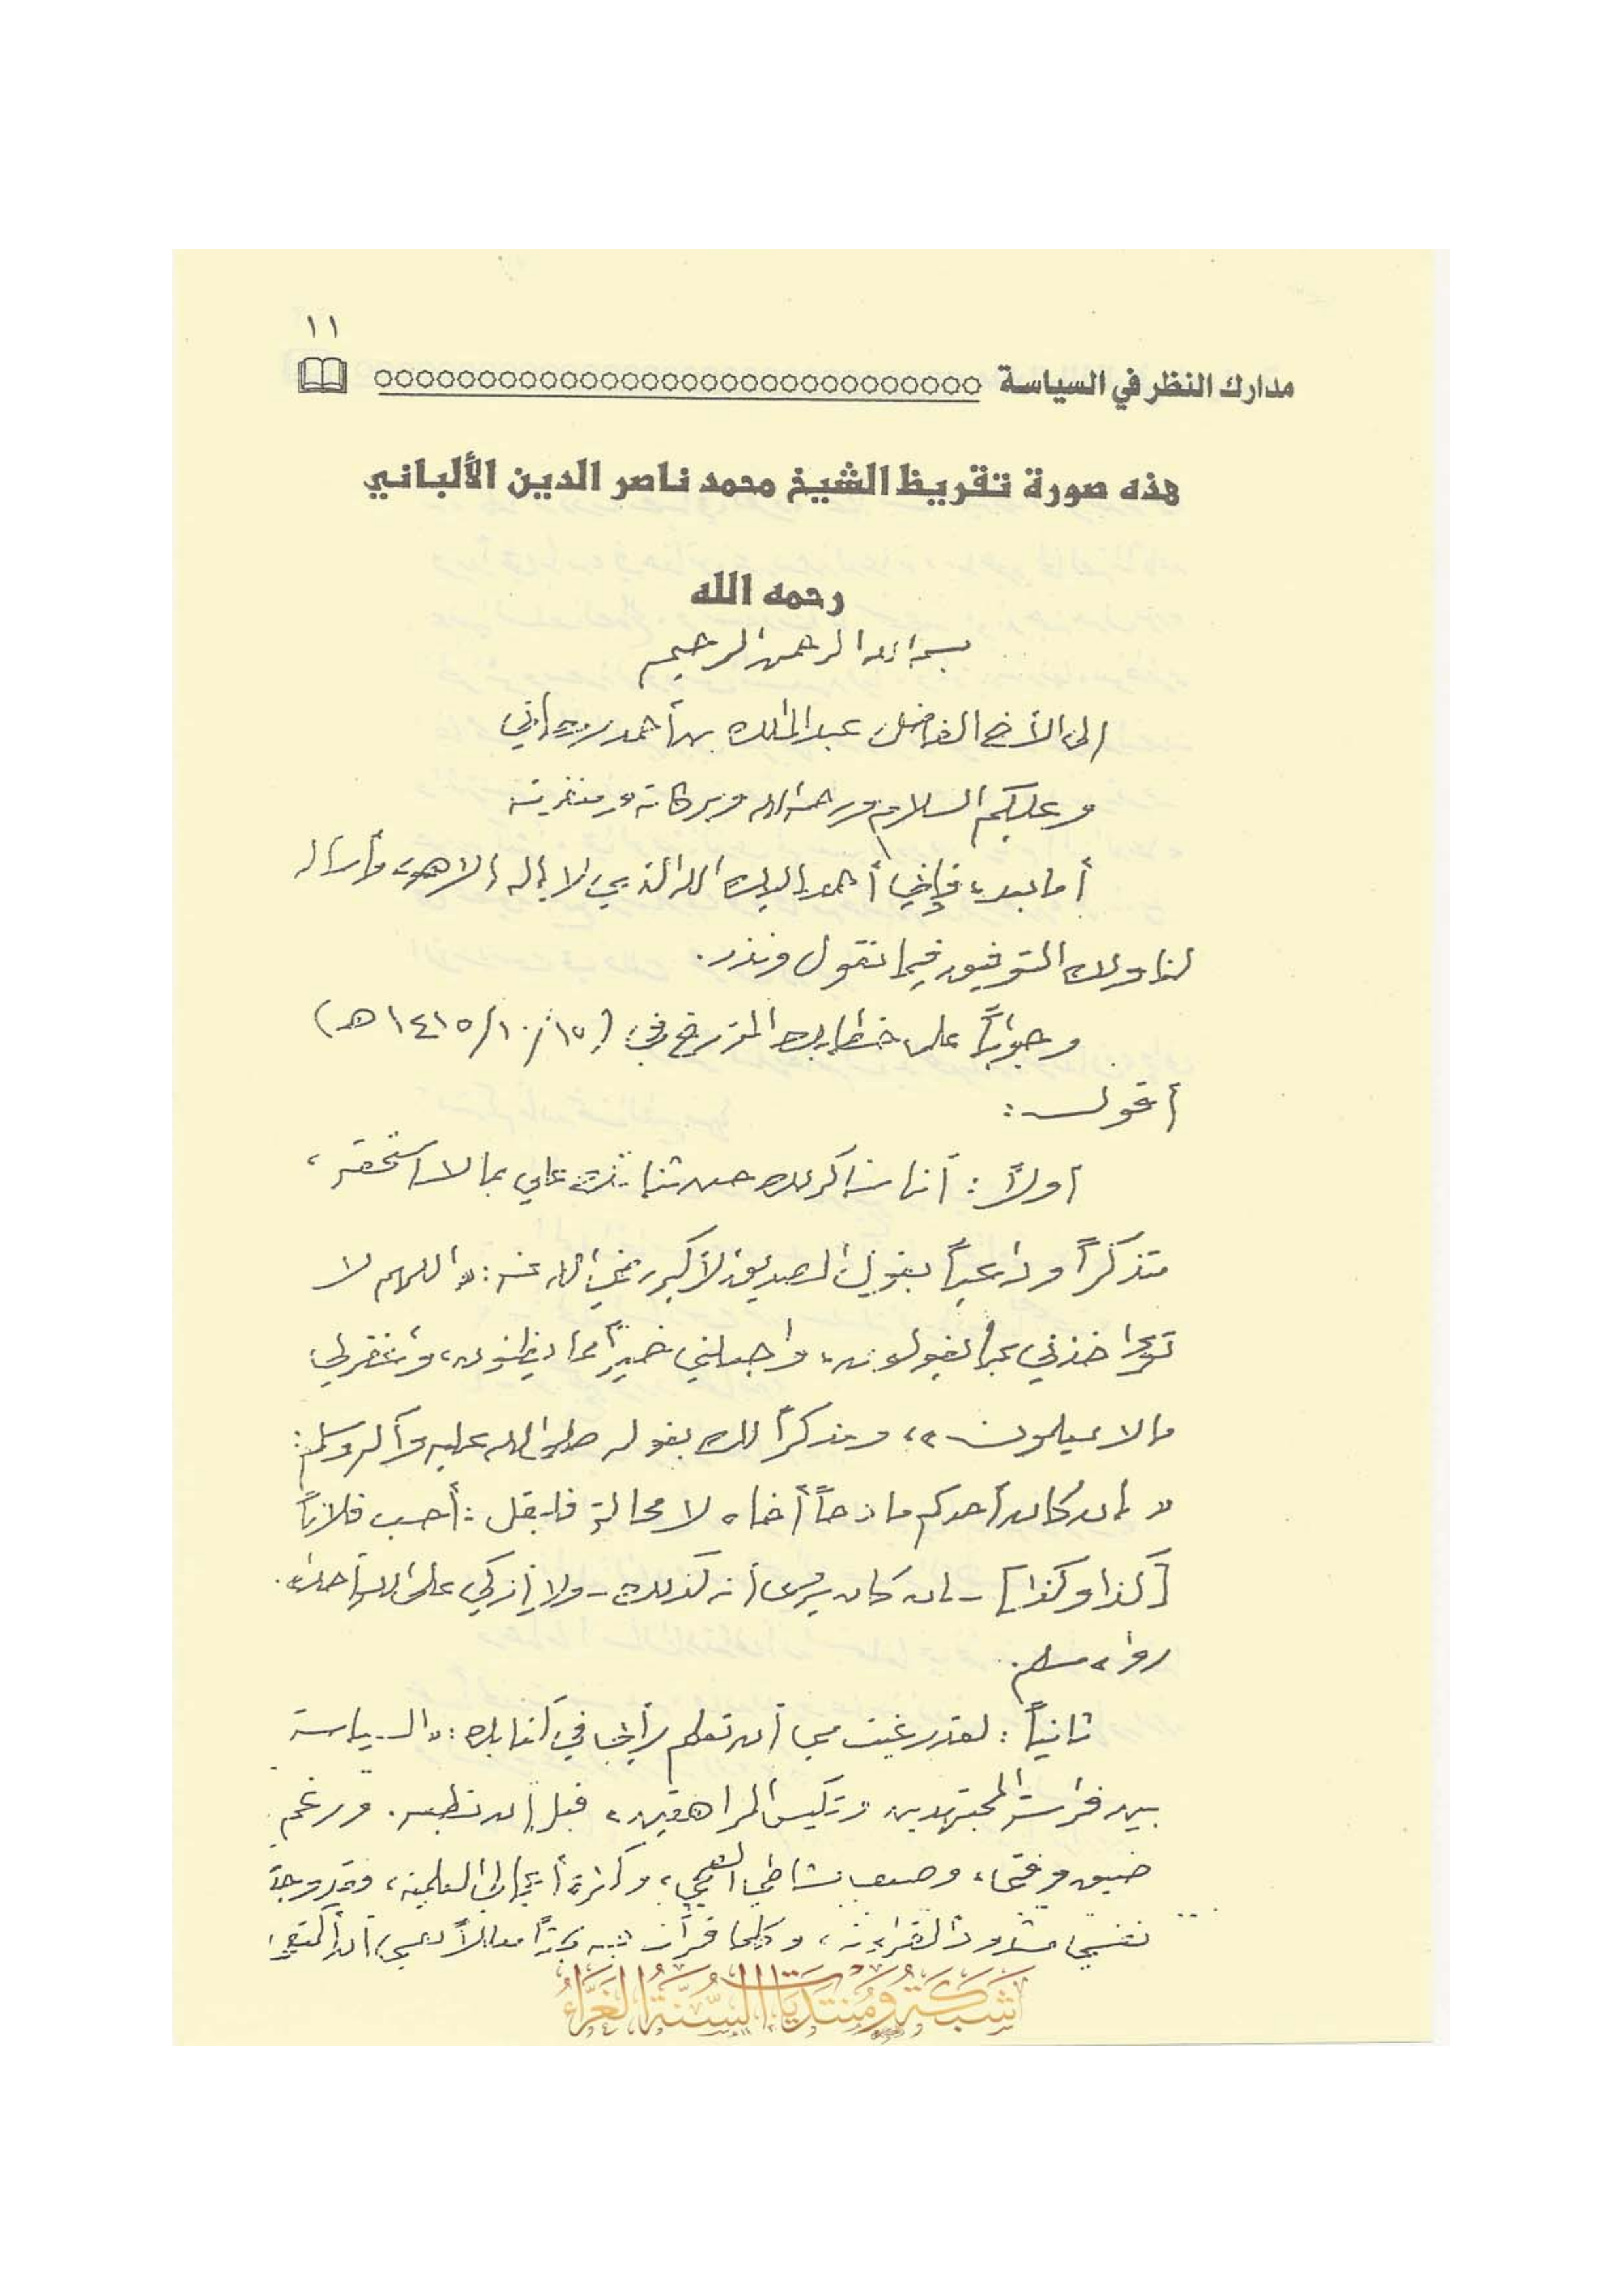 ١١
مدارك النظر في السياسة
هذه صورة تقريظ الشيخ محمد ناصر الدين الألباني
رحمه الله
بسم الله الرحمن الرحيم
إلى الأخ الفاضل عبد المالك بن أحمد رمضاني
وعليكم السلام ورحمة الله وبركاته ومغفرته
أما بعد، فإني أحمد إليك الله الذي لا إله إلا هو، وأسأله
لنا ولك التوفيق فيما نقول ونذر.
وجواباً على خطابك المؤرخ في: (١٥/١٠/١٤١٥هـ)
أقول:
أولاً: أنا شاكر لك حسن ثنائك علي بما لا أستحقه،
متذكراً وداعياً بقول الصديق الأكبر رضي الله عنه: «اللهم لا
تؤاخذني بما يقولون، واجعلني خيراً مما يظنون، واغفر لي
ما لا يعلمون»، ومذكراً لك بقوله صلى الله عليه وآله وسلم:
«إن كان أحدكم مادحاً أخاه لا محالة فليقل: أحسب فلاناً
[كذا وكذا] - إن كان يرى أنه كذلك - ولا أزكي على الله أحداً».
رواه مسلم.
ثانياً: لقد رغبت مني أن تعلم رأيي في كتابك: «السياسة
بين فراسة المجتهدين وتكيس المراهقين» قبل أن تطبعه. ورغم
ضيق وقتي، وضعف نشاطي الصحي، وكثرة أعمالي العلمية، فقد وجدت
نفسي مشدوداً لقراءته، وكلما قرأت فيه بحثاً معللاً نفسي أن أكتفي
شبكة ومنتديات السنة الغراء